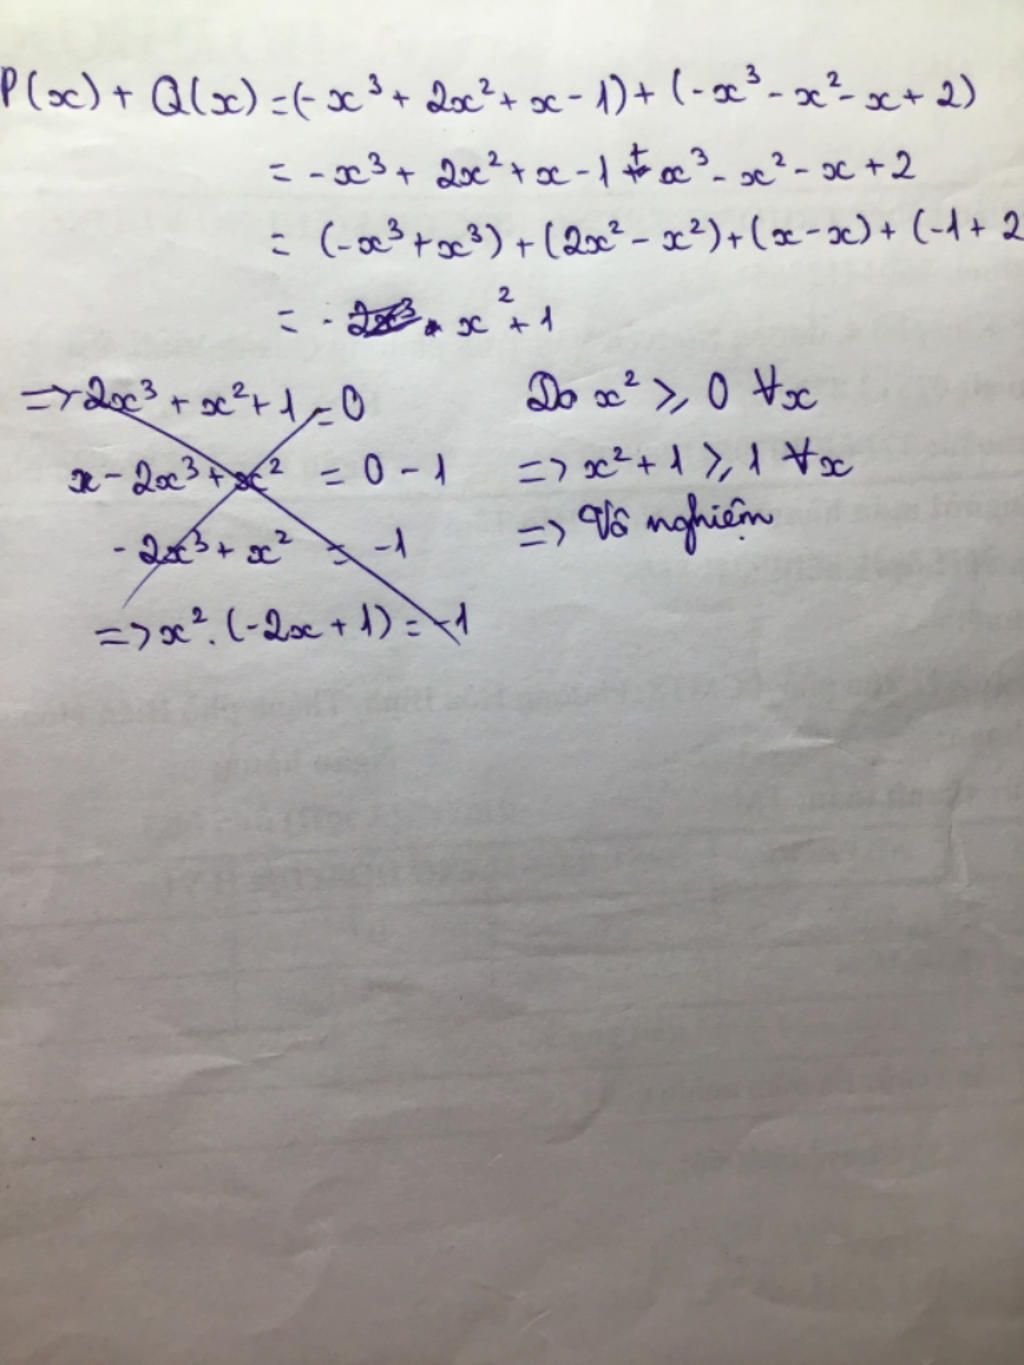 P(x) + Q(x) = (-x³ + 2x² + x - 1) + (-x³ - x² - x + 2)
= -x³ + 2x² + x - 1 + x³ - x² - x + 2
= (-x³ + x³) + (2x² - x²) + (x - x) + (-1 + 2
= x² + 1
=> 2x³ + x² + 1 = 0
x - 2x³ + x² = 0 - 1
- 2x³ + x² = -1
=> x². (-2x + 1) = -1
Do x² ≥ 0 ∀x
=> x² + 1 ≥ 1 ∀x
=> Vô nghiệm